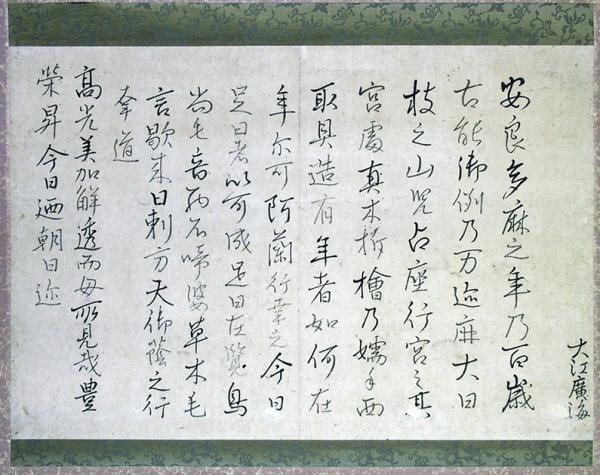 大江廣海
安良多麻之年乃百歳
古能御例乃万迩麻大日
枝之山児占座行宮之其
宮處真木柝檜乃嬬手西
取具造有年者如何在
年尓可阿蘭行幸之今日
足日者以可成足日在覧鳥
尚毛音不啼婆草木毛
言歇来日刺方天御蔭之行
幸道
高光美加解透而毎所見哉豊
榮昇今日廼朝日迩